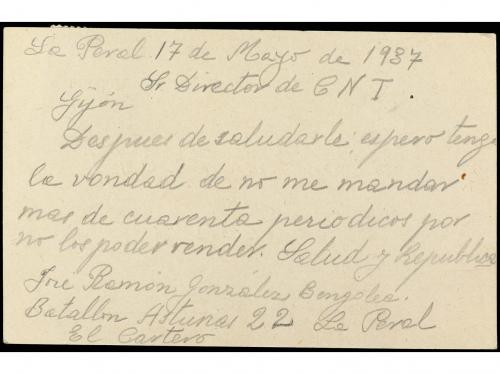 La Peral 17 de Mayo de 1937
Sr Director de C N T.
Gijón
Despues de saludarle espero tenga
la vondad de no me mandar
mas de cuarenta periodicos por
no los poder vender. Salud y Republica
José Ramón González Bengolea.
Batallon Asturias 22 La Peral
El Cartero